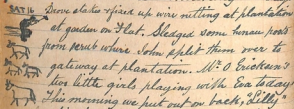 SAT 16 Drove stakes & fixed up wire netting at plantation
at garden on Flat. Sledged some henau posts
from scrub where John split them over to
gateway at plantation. Mr O Ericksen's
two little girls playing with Eva today
This morning we put out on back, Lilly